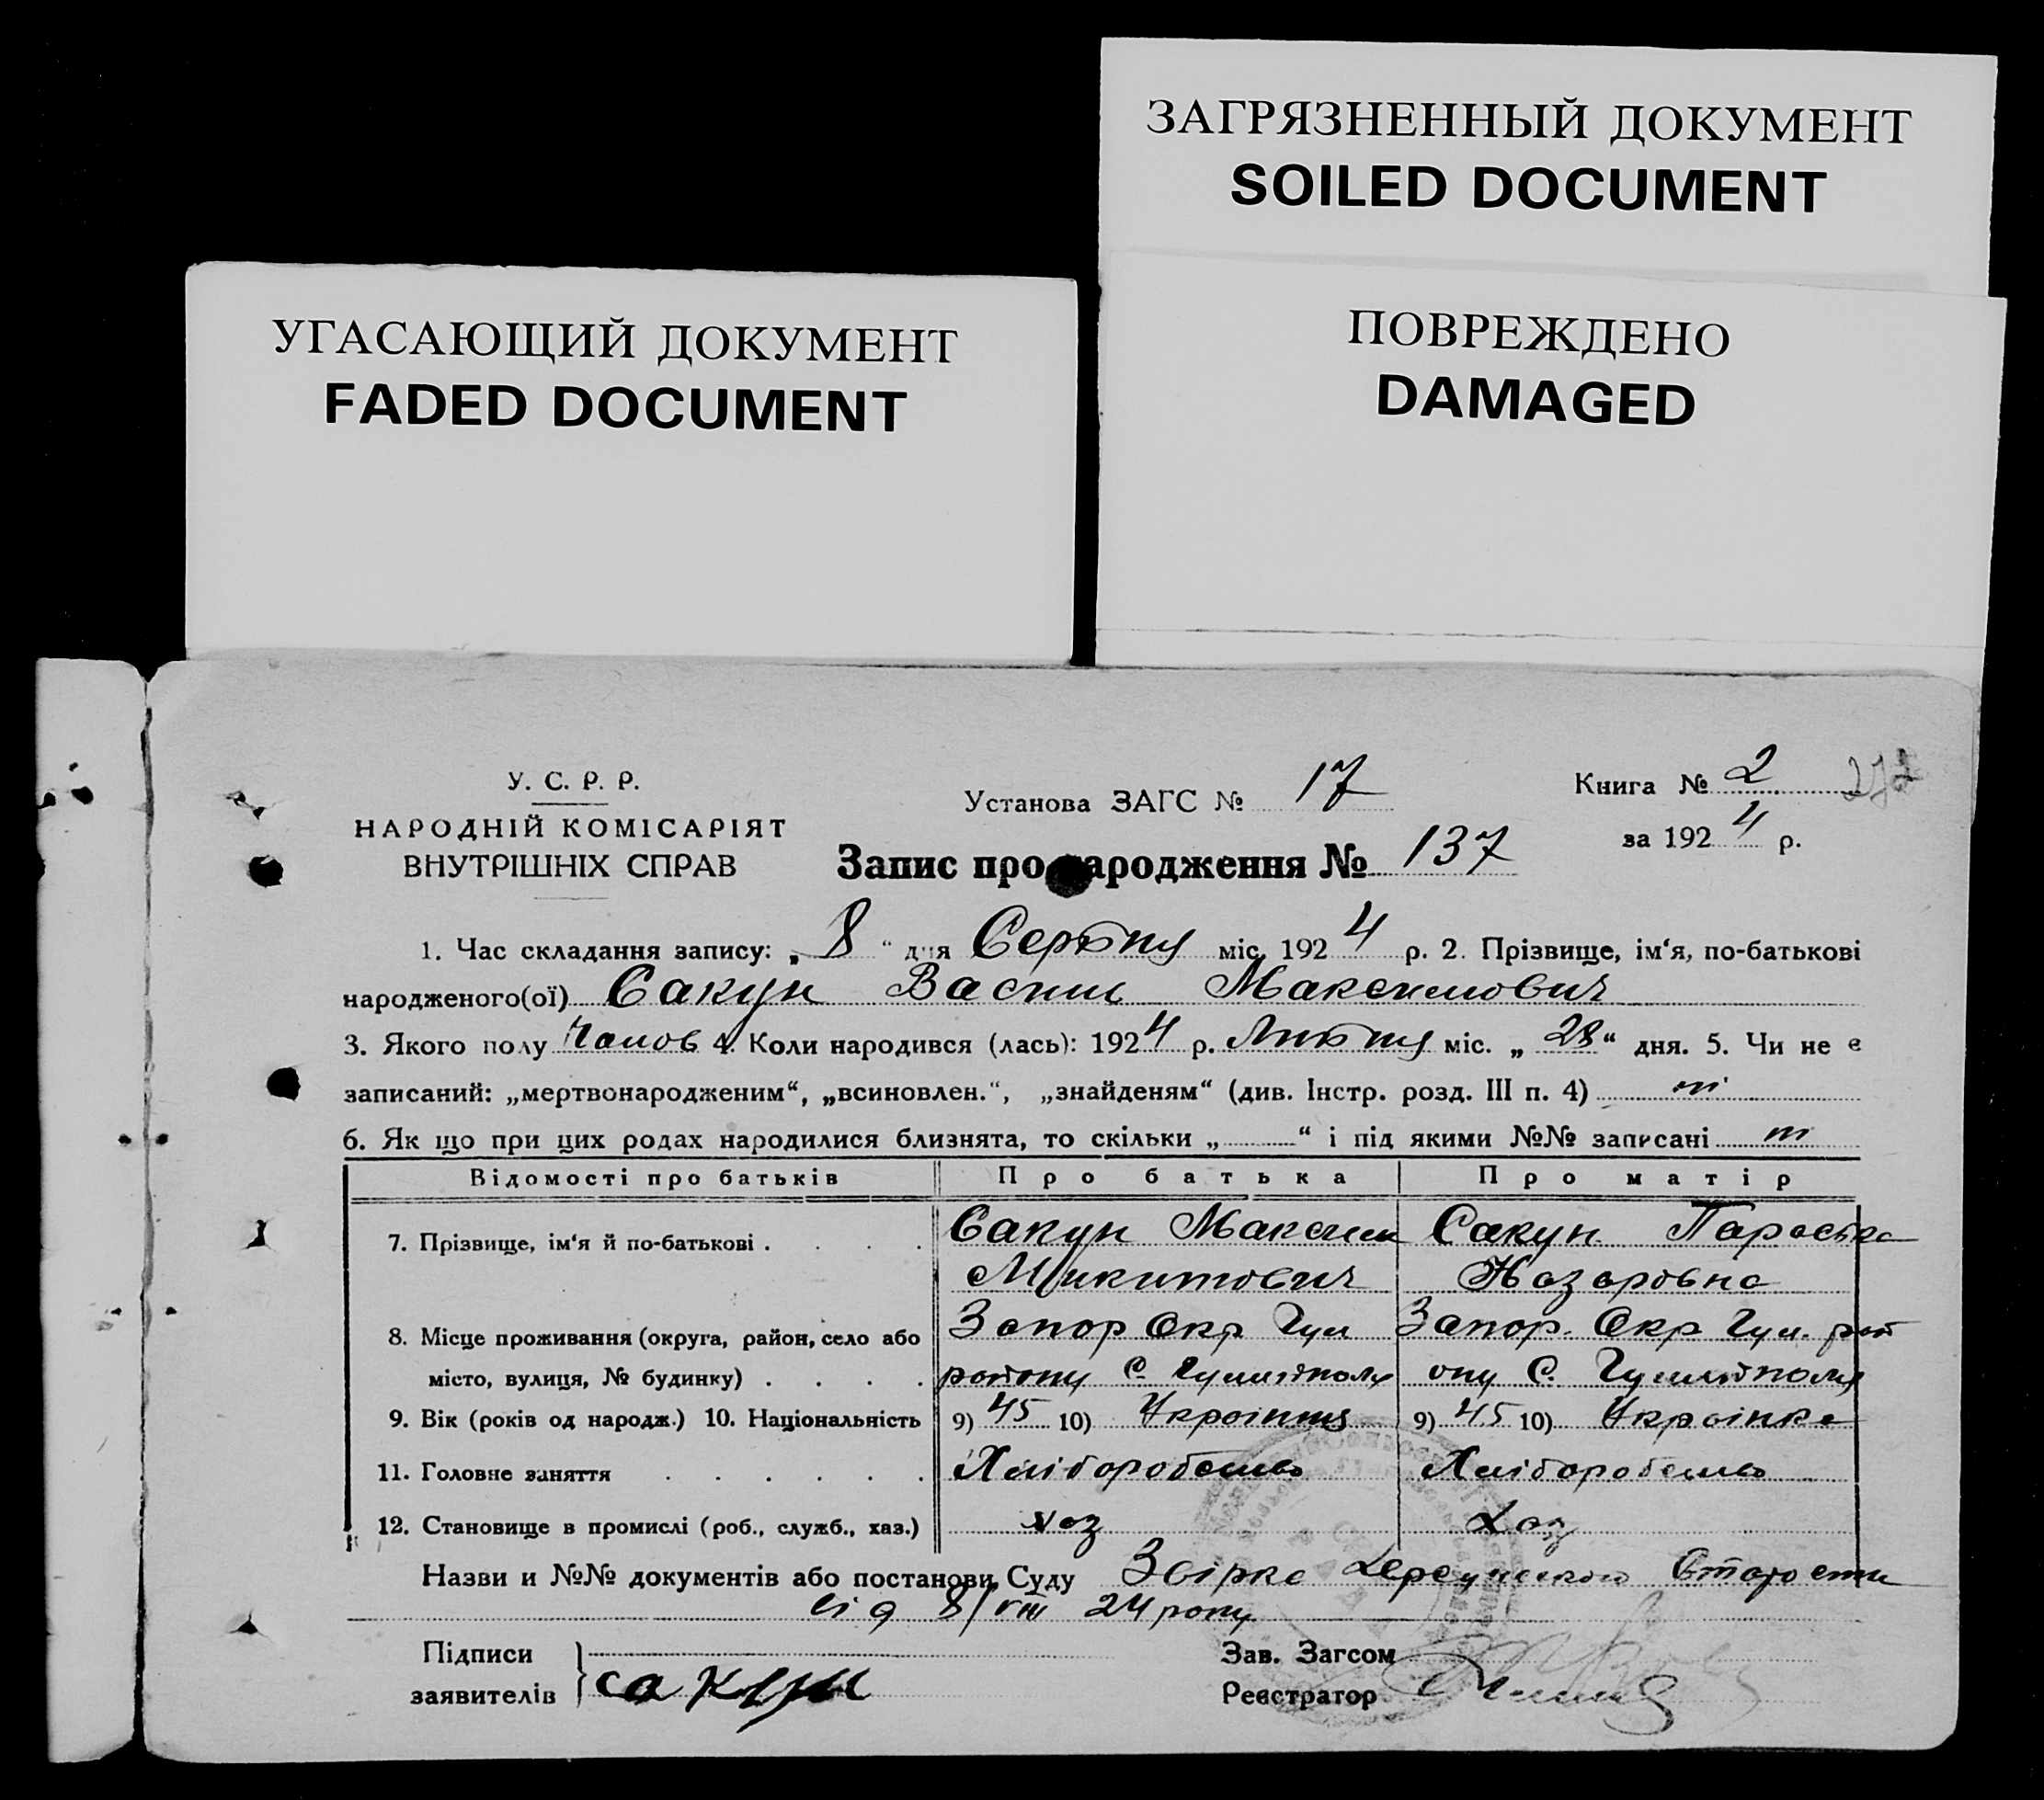 ЗАГРЯЗНЕННЫЙ ДОКУМЕНТ
SOILED DOCUMENT
УГАСАЮЩИЙ ДОКУМЕНТ
FADED DOCUMENT
ПОВРЕЖДЕНО
DAMAGED
У. С. Р. Р.
НАРОДНІЙ КОМІСАРІЯТ
ВНУТРІШНІХ СПРАВ
Установа ЗАГС № 17
Книга № 2
за 1924 р.
Запис про народження № 137
1. Час складання запису: „8“ дня Серпня міс. 1924 р. 2. Прізвище, ім‘я, по-батькові
народженого(ої) Сакун Василь Максимович
3. Якого полу Чолов 4. Коли народився (лась): 1924 р. Липня міс. „28“ дня. 5. Чи не є
записаний: „мертвонародженим“, „всиновлен.“, „знайденям“ (див. Інстр. розд. III п. 4) ні
6. Як що при цих родах народилися близнята, то скільки „ “ і під якими №№ записані ні
Відомості про батьків Про батька Про матір
7. Прізвище, ім‘я й по-батькові . . . . Сакун Максим Сакун Параска
Микитович Назаровна
8. Місце проживання (округа, район, село або Запор Окр Гул Запор. Окр Гул. рай
місто, вулиця, № будинку) . . . . району С. Гуляйполя ону С. Гуляйполя
9. Вік (років од народж.) 10. Національність 9) 45 10) Украінец 9) 45 10) Украінка
11. Головне заняття . . . . . . Хліборобство Хліборобство
12. Становище в промислі (роб., служб., хаз.) хоз хоз
Назви и №№ документів або постанови Суду Старости
від 8/VIII 24 року
Підписи
заявителів } сакун
Зав. Загсом
Реєстратор